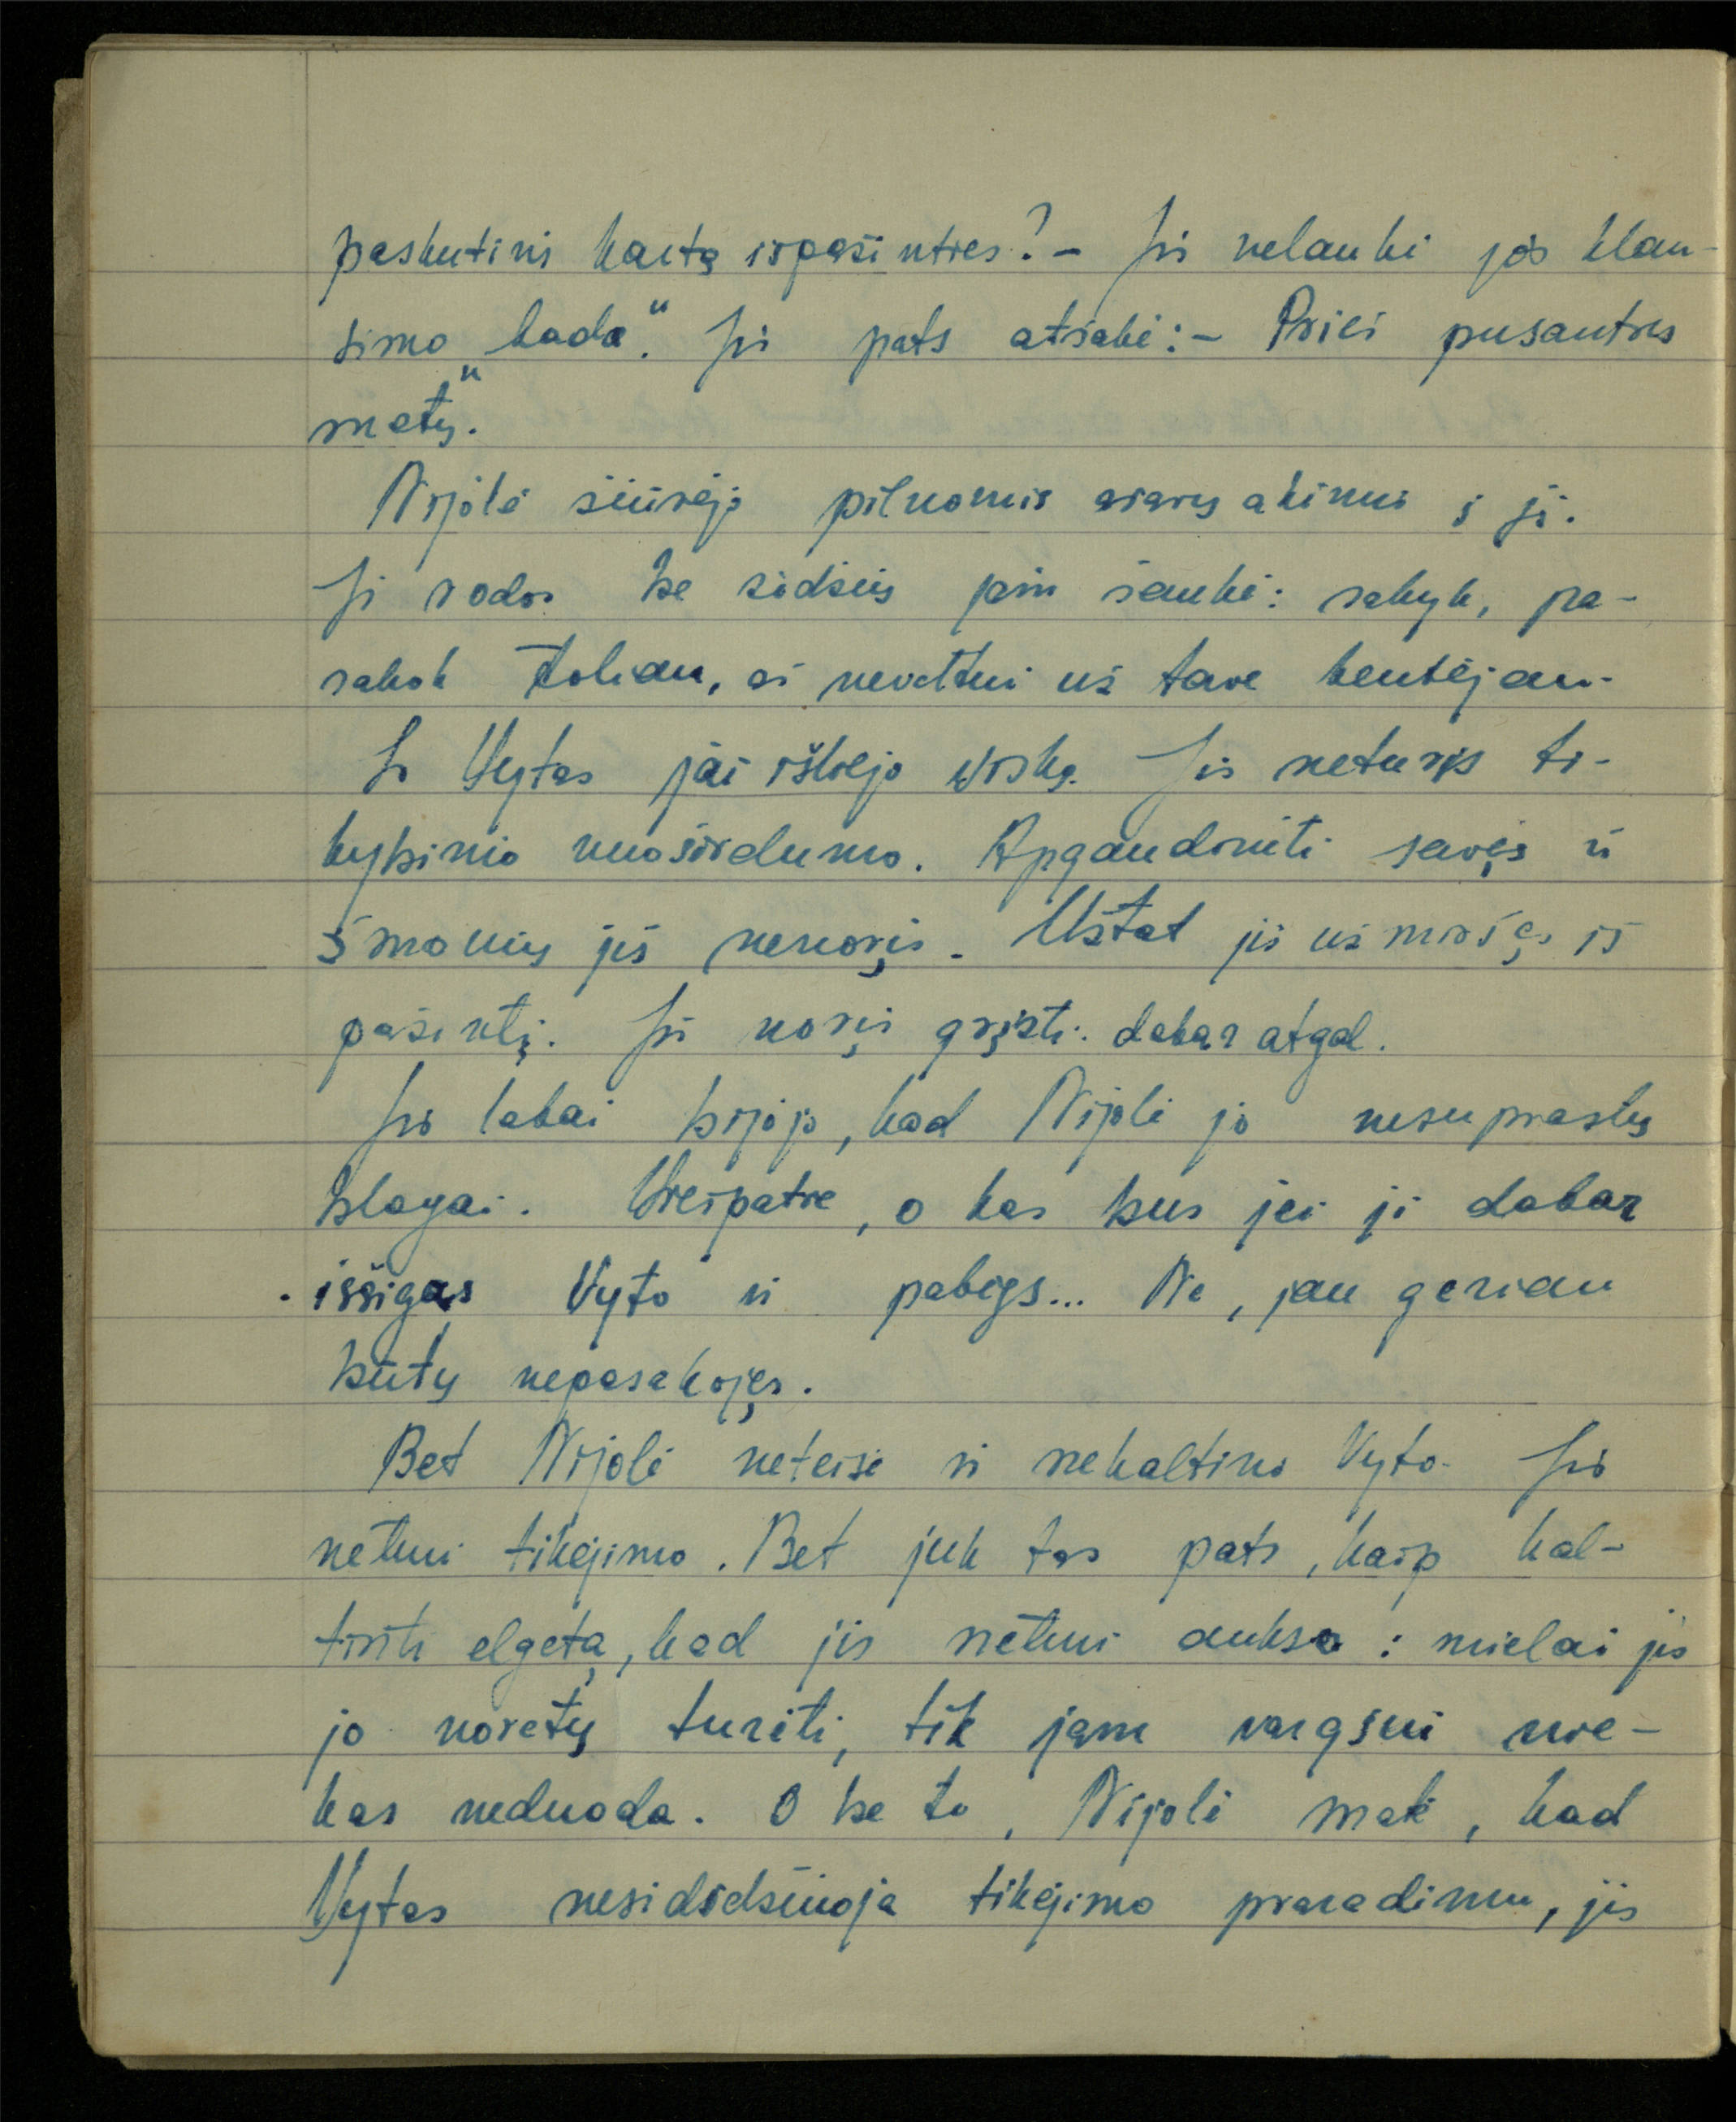 paskutinį kartą išpažinties? – Jis nelaukė jos klau-
simo „kada“. Jis pats atsakė: – Prieš pusantrų
metų.“
Nijolė žiūrėjo pilnomis ašarų akimis į jį.
Ji rodos be žodžių jam šaukė: sakyk, pa-
sakok toliau, aš neveltui už tave kentėjau.
Ir Vytas jai išklojo viską. Jis neturįs ti-
kybinio nuoširdumo. Apgaudinėti savęs ir
žmonių jis nenorįs. Užtat jis užmiršęs iš
pažintį. Jis norįs grįžti dabar atgal.
Jis labai bijojo, kad Nijolė jo nesuprastų
blogai. Viešpatie, o kas bus jei ji dabar
išsigąs Vyto ir pabėgs... Ne, jau geriau
būtų nepasakojęs.
Bet Nijolė neteisė ir nekaltino Vyto. Jis
neturi tikėjimo. Bet juk tas pats, kaip kal-
tinti elgetą, kad jis neturi aukso: mielai jis
jo norėtų turėti, tik jam vargšui nie-
kas neduoda. O be to, Nijolė matė, kad
Vytas nesididžiuoja tikėjimo praradimu, jis